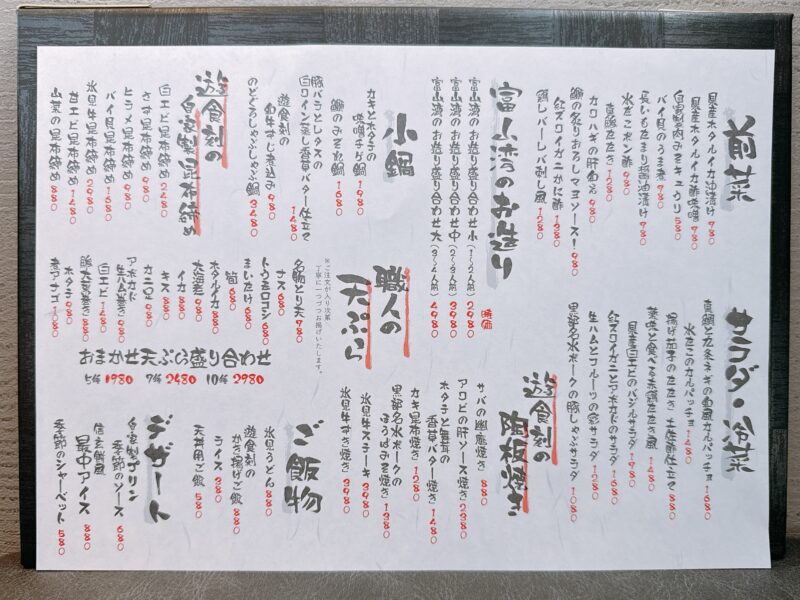 前菜
県産ホタルイカ沖漬け 780
県産ホタルイカ酢味噌 780
自家製肉みそキュウリ 580
バイ貝のうま煮 780
長いもたまり醤油漬け 780
水だこポン酢 980
真鯛たたき 1280
カワハギの肝和え 980
鰤の炙りおろしマヨソース! 980
紅ズワイガニかに酢 1380
鶏レバーレバ刺し風 1280
富山湾のお造り
富山湾のお造り盛り合わせ小(1〜2人前) 2980
富山湾のお造り盛り合わせ中(2〜3人前) 3980
富山湾のお造り盛り合わせ大(3〜4人前) 4980
時価
小鍋
カキとホタテの
味噌チゲ鍋 1980
鰤のみぞれ鍋 1680
豚バラとレタスの
白ワイン蒸し香草バター仕立て 1480
遊食刻の
和牛すじ煮込み 980
のどぐろしゃぶしゃぶ鍋 3480
遊食刻の
自家製昆布締め
白エビ昆布締め 2480
さす昆布締め 980
ヒラメ昆布締め 980
バイ貝昆布締め 1680
氷見牛昆布締め 2980
甘エビ昆布締め 1480
山菜の昆布締め 880
サラダ・冷菜
真鯛と九条ネギの和風カルパッチョ 1680
水だこのカルパッチョ 1480
揚げ茄子のたたき 土佐酢仕立て 880
薬味と食べる赤鶏たたき風 1480
県産白エビのバジルサラダ 1980
紅ズワイガニとアボカドのサラダ 1680
生ハムとフルーツの彩サラダ 1280
黒部名水ポークの豚しゃぶサラダ 1080
遊食刻の
陶板焼き
サバの幽庵焼き 880
アワビの肝ソース焼き 2380
ホタテと舞茸の
香草バター焼き 1480
カキ昆布焼き 1280
黒部名水ポークの
ほうばみそ焼き 1380
氷見牛ステーキ 3980
氷見牛すき焼き 3980
職人の
天ぷら
※ご注文が入り次第
丁寧に一つづつお揚げいたします。
名物とり天 780
ナス 680
トウモロコシ 680
まいたけ 680
筍 680
ホタルイカ 880
大海老 980
イカ 880
キス 880
カニ足 980
アボカド
生ハム巻き 980
白エビ 1480
豚大葉巻き 880
ホタテ 980
煮アナゴ 1080
おまかせ天ぷら盛り合わせ
5種 1980 7種 2480 10種 2980
ご飯物
氷見うどん 880
遊食刻の
かき揚げご飯 880
ライス 380
天丼用ご飯 580
デザート
自家製プリン
季節のソース 680
信玄餅風
最中アイス 880
季節のシャーベット 580